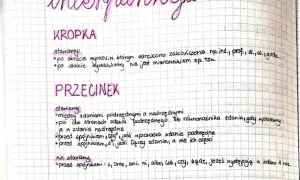 interpunkcja
KROPKA
stawiamy:
• po skrócie wyrazu, w którym odrzucono zakończenie np. inż., prof., ul., al., godz.
• po skrócie wyrazów, nie jest mianownikiem np.
PRZECINEK
stawiamy:
• między zdaniami podrzędnymi a nadrzędnymi
• po obu stronach zdania podrzędnego lub równoważnika zdania, gdy
są w zdanie nadrzędne
• przed spójnikiem, jeśli wprowadza zdanie podrzędne
• przed spójnikiem, jeśli łączy zdania, a nie ich części
nie stawiamy:
• przed spójnikami: i, oraz, ani, ni, albo, lub, czy, bądź, jeżeli występują w zdaniu